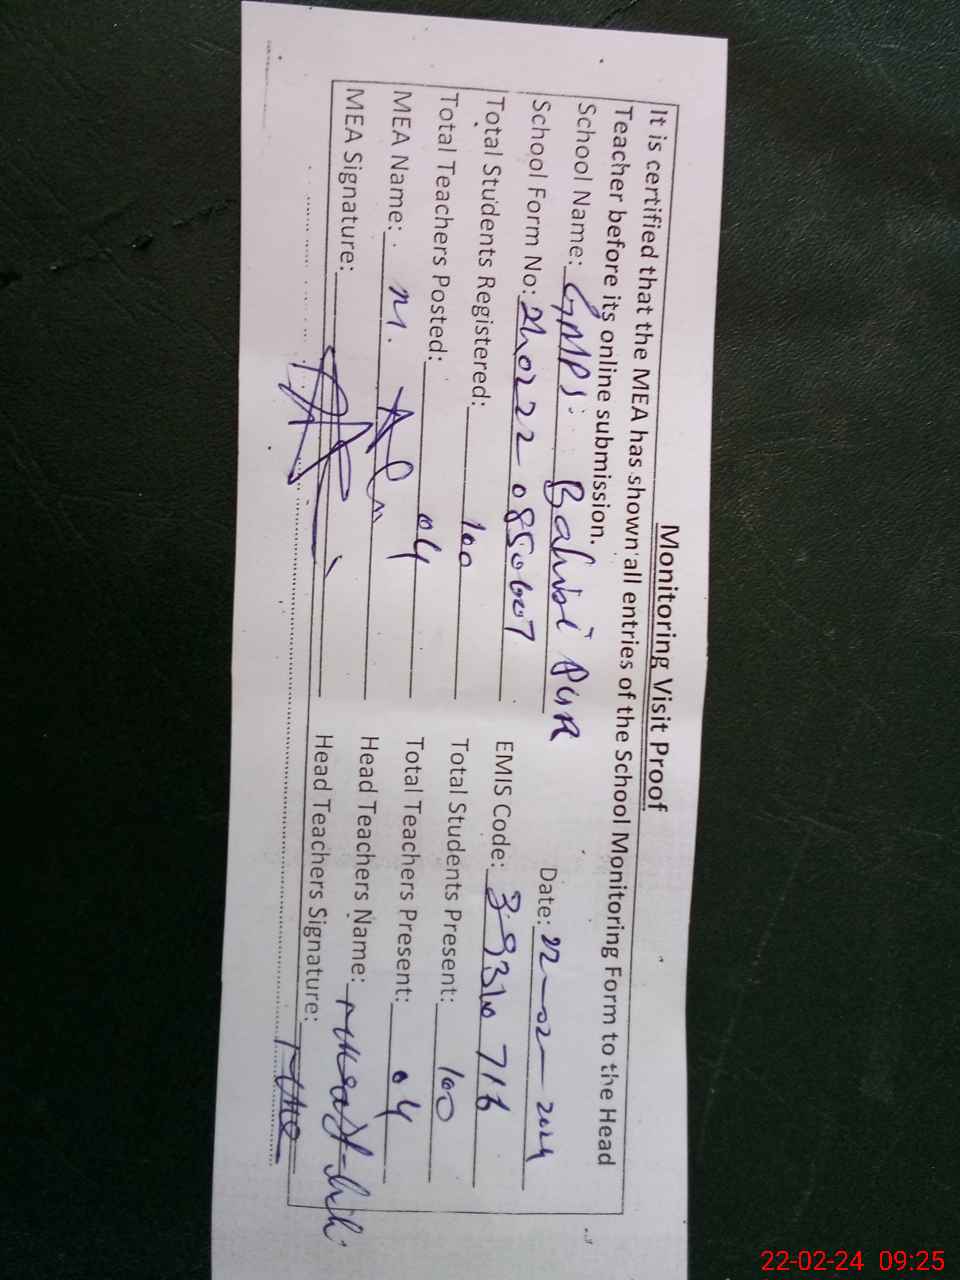 Monitoring Visit Proof
It is certified that the MEA has shown all entries of the School Monitoring Form to the Head
Teacher before its online submission.
Date: 22-02-2024
School Name: GMPS
School Form No: EMIS Code:
Total Students Registered: 100 Total Students Present: 100
Total Teachers Posted: 04 Total Teachers Present: 04
MEA Name: M. Head Teachers Name:
MEA Signature: Head Teachers Signature:
22-02-24 09:25